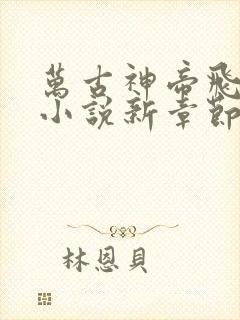 萬古神帝飛
小說新章節
林恩貝